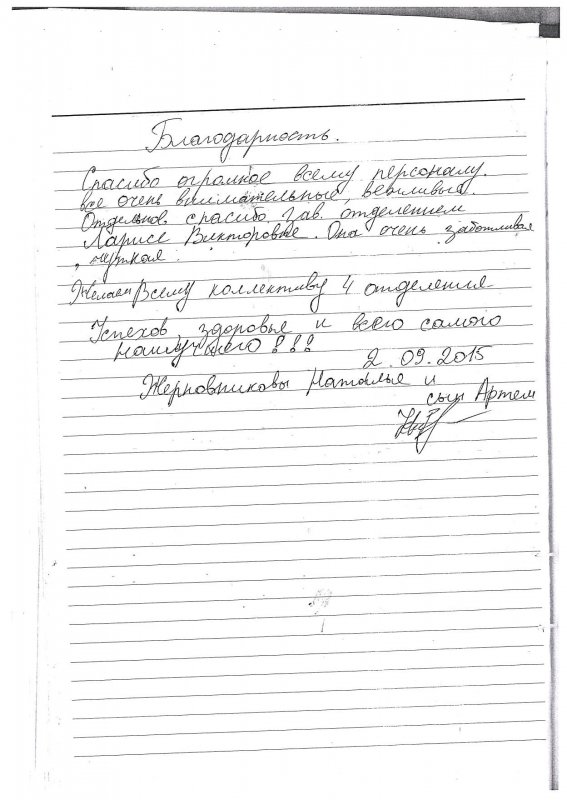 Благодарность.
Спасибо огромное всему персоналу.
все очень внимательные, вежливые.
Отдельное спасибо зав. отделением
Ларисе Викторовне. Она очень заботливая
, чуткая.
Желаем Всему коллективу 4 отделения
Успехов, здоровья и всего самого
наилучшего!!!
2.09.2015
Жерновниковы Наталья и
сын Артем